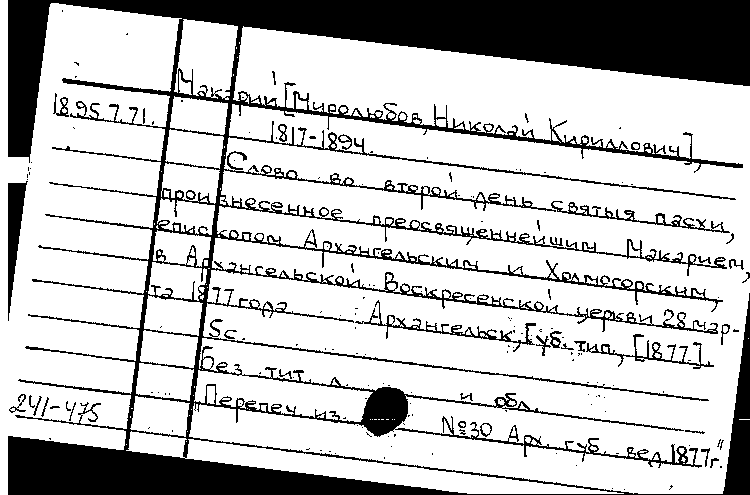 Макарий [Миролюбов, Николай Кириллович],
18.95.7.71.
1817-1894.
Слово во второй день святыя пасхи,
произнесенное преосвященнейшим Макарием,
епископом Архангельским и Холмогорским,
в Архангельской Воскресенской церкви 28 мар-
та 1877 года Архангельск, Губ. тип., [1877].
5с.
Без тит. л. и обл.
"Перепеч из №30 Арх. губ. вед. 1877г."
241-475